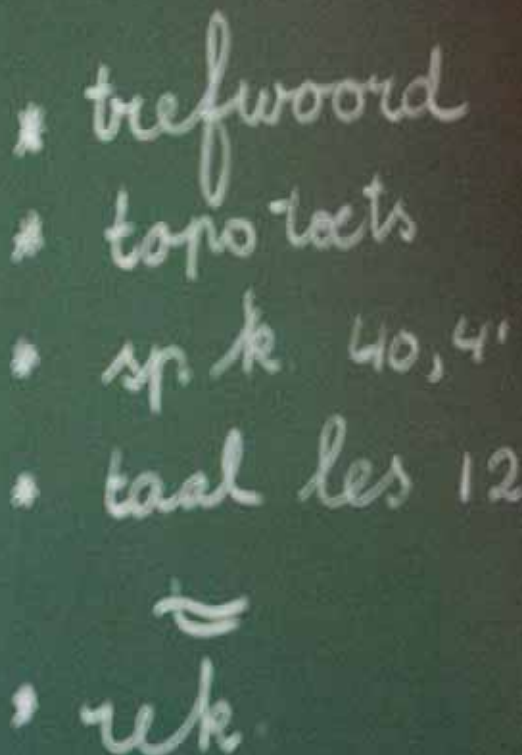 * trefwoord
* topo toets
* sp. k. 40, 4
* taal les 12
* rek.